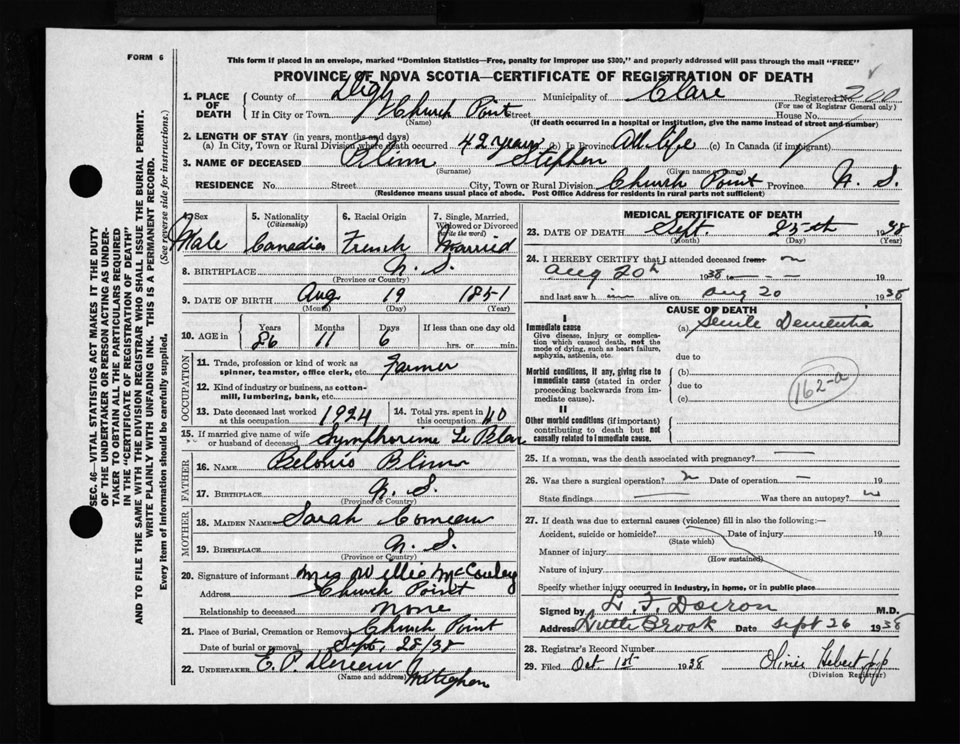 FORM 6
This form if placed in an envelope, marked "Dominion Statistics—Free, penalty for improper use $300," and properly addressed will pass through the mail "FREE"
PROVINCE OF NOVA SCOTIA—CERTIFICATE OF REGISTRATION OF DEATH
SEC. 46—VITAL STATISTICS ACT MAKES IT THE DUTY
OF THE UNDERTAKER OR PERSON ACTING AS UNDER-
TAKER TO OBTAIN ALL THE PARTICULARS REQUIRED
IN THE "CERTIFICATE OF REGISTRATION OF DEATH"
AND TO FILE THE SAME WITH THE DIVISION REGISTRAR WHO SHALL ISSUE THE BURIAL PERMIT.
WRITE PLAINLY WITH UNFADING INK. THIS IS A PERMANENT RECORD.
Every item of Information should be carefully supplied. (See reverse side for instructions.)
1. PLACE OF DEATH
County of Digby Municipality of Clare Registered No. 200
(For use of Registrar General only)
If in City or Town Church Point Street House No.
(Name) (If death occurred in a hospital or institution, give the name instead of street and number)
2. LENGTH OF STAY (in years, months and days)
(a) In City, Town or Rural Division where death occurred 42 years (b) In Province All life (c) In Canada (if immigrant)
3. NAME OF DECEASED Blinn Stephen
(Surname) (Given name or names)
RESIDENCE No. Street City, Town or Rural Division Church Point Province N. S.
(Residence means usual place of abode. Post Office Address for residents in rural parts not sufficient)
4. Sex Male
5. Nationality (Citizenship) Canadian
6. Racial Origin French
7. Single, Married, Widowed or Divorced (write the word) Married
8. BIRTHPLACE N. S.
(Province or Country)
9. DATE OF BIRTH Aug 19 1851
(Month) (Day) (Year)
10. AGE in Years 86 Months 11 Days 6 If less than one day old hrs. or min.
OCCUPATION
11. Trade, profession or kind of work as spinner, teamster, office clerk, etc. Farmer
12. Kind of industry or business, as cotton-mill, lumbering, bank, etc.
13. Date deceased last worked at this occupation 1924
14. Total yrs. spent in this occupation 40
15. If married give name of wife or husband of deceased Symphorienne Le Blanc
FATHER
16. NAME Belonie Blinn
17. BIRTHPLACE N. S.
(Province or Country)
MOTHER
18. MAIDEN NAME Sarah Comeau
19. BIRTHPLACE N. S.
(Province or Country)
20. Signature of informant Mrs Willie McCauley
Address Church Point
Relationship to deceased none
21. Place of Burial, Cremation or Removal Church Point
Date of burial or removal Sept. 28/38
22. UNDERTAKER E. P. Deveau
(Name and address) Meteghan
MEDICAL CERTIFICATE OF DEATH
23. DATE OF DEATH Sept. 25th 1938
(Month) (Day) (Year)
24. I HEREBY CERTIFY that I attended deceased from on
Aug 20th 1938 19
and last saw him alive on Aug 20 1938
CAUSE OF DEATH
I
Immediate cause
Give disease, injury or complication which caused death, not the mode of dying, such as heart failure, asphyxia, asthenia, etc.
(a) Senile Dementia
due to
Morbid conditions, if any, giving rise to immediate cause (stated in order proceeding backwards from immediate cause).
(b)
due to
(c)
162-a
II
Other morbid conditions (if important) contributing to death but not causally related to immediate cause
25. If a woman, was the death associated with pregnancy? —
26. Was there a surgical operation? Date of operation — 19
State findings — Was there an autopsy?
27. If death was due to external causes (violence) fill in also the following:—
Accident, suicide or homicide? Date of injury 19
(State which)
Manner of injury
(How sustained)
Nature of injury
Specify whether injury occurred in industry, in home, or in public place
Signed by L. F. Doiron M.D.
Address Little Brook Date Sept 26 1938
28. Registrar's Record Number
29. Filed Oct 1st 1938 Hebert
(Division Registrar)